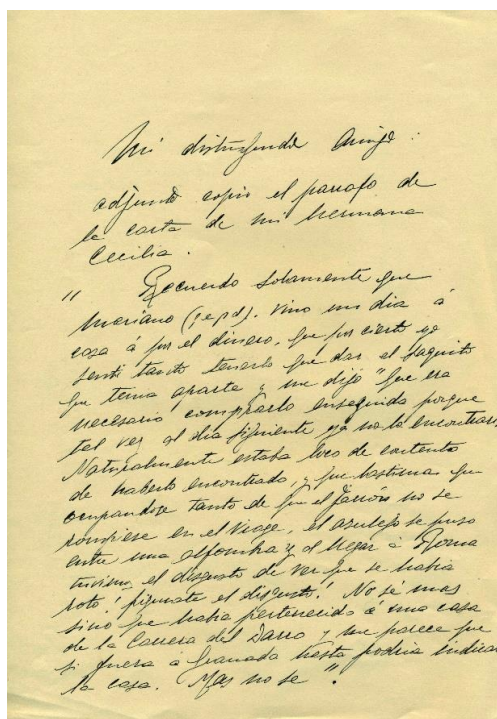 Mi distinguido Amigo:
adjunto copio el parrafo de
la carta de mi hermana
Cecilia.
" Recuerdo solamente que
Mariano (q.e.p.d). vino un dia á
casa á por el dinero, que por cierto yo
senti tanto tenerlo que dar, el paquito
que tenia aparte y me dijo "que era
necesario comprarlo enseguida porque
tal vez al dia siguiente ya no lo encontrara
Naturalmente estaba loco de contento
de haberlo encontrado, y que lastima que
ocupandose tanto de que el Jarron no se
rompiese en el Viage, el azulejo se puso
entre una alfombra y al llegar á Roma
tuvimos el disgusto de ver que se habia
roto! figurate el disgusto! No sé mas
sino que habia pertenecido á una casa
de la Carrera del Darro y me parece que
si fuera a Granada hasta podria indicar
la casa. Mas no se".